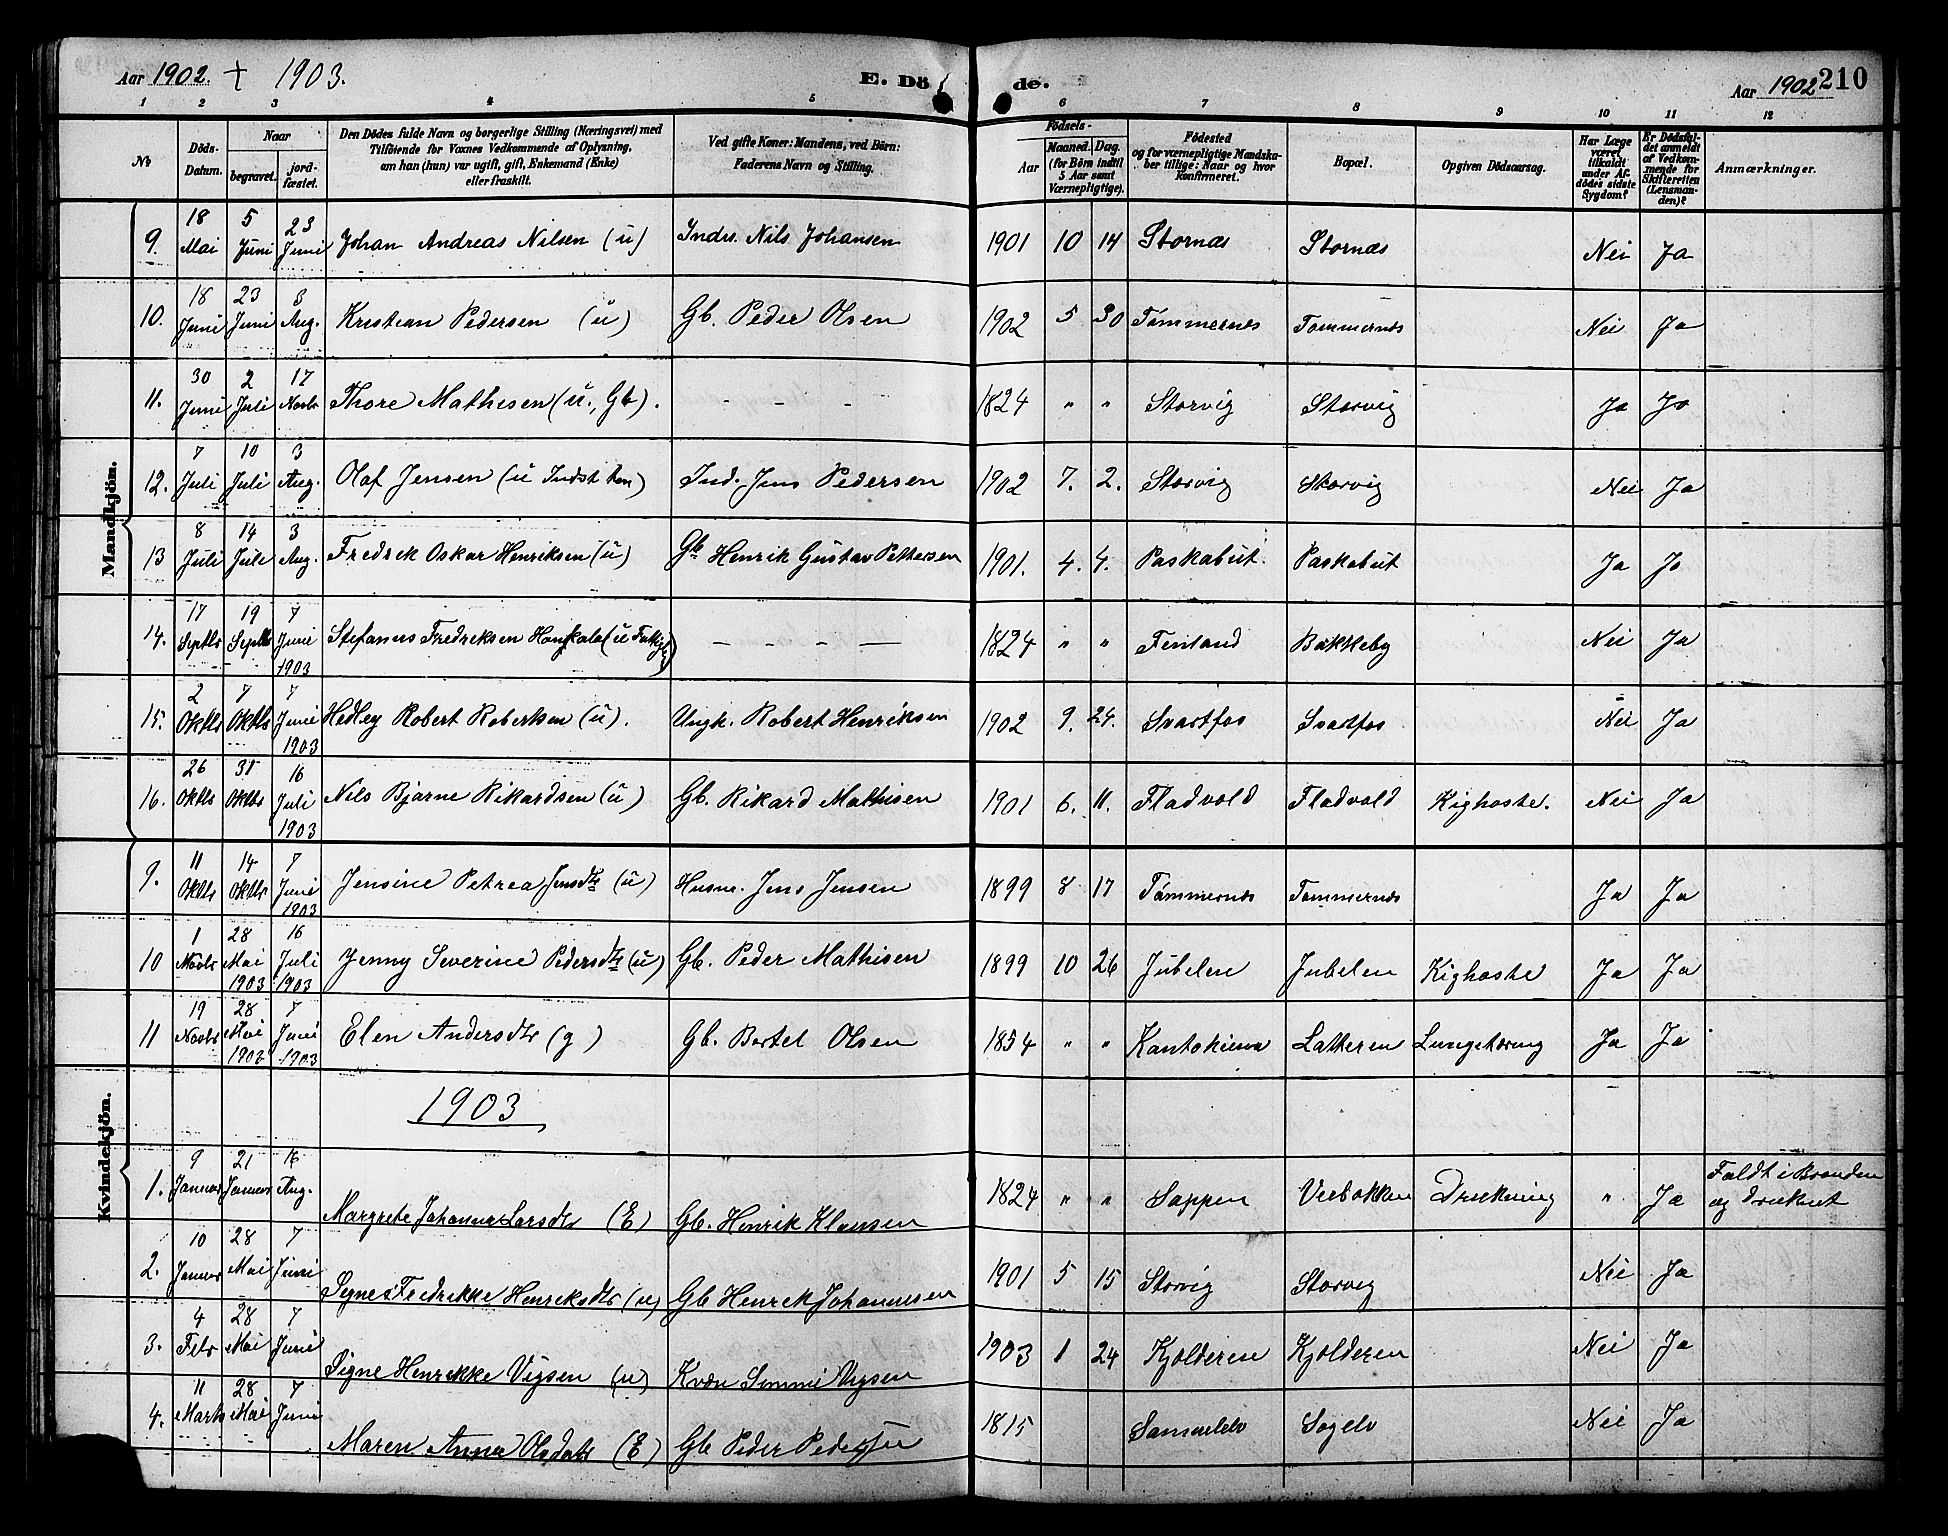 Aar 1902. + 1903. E. Dö de. Aar 1902 210
1 2 3 4 5 6 7 8 9 10 11 12
No
Döds-Datum.
Naar
begravet.
jord-fæstet.
Den Dödes fulde Navn og borgerlige Stilling (Næringsvei) med
Tilföiende for Voxnes Vedkommende af Oplysning,
om han (hun) var ugift, gift, Enkemand (Enke)
eller fraskilt.
Ved gifte Koner: Mandens, ved Börn:
Faderens Navn og Stilling.
Födsels-
Aar
Maaned. Dag.
(for Börn indtil
5 Aar samt
Værnepligtige).
Födested
og for værnepligtige Mandska-
ber tillige: Naar og hvor
konfirmeret.
Bopæl.
Opgiven Dödsaarsag.
Har Læge
været
tilkaldt
under Af-
dödes sidste
Sygdom?
Er Dödsfal-
det anmeldt
af Vedkom-
mende for
Skifteretten
(Lensman-
den)?
Anmærkninger.
Mandkjön.
9. 18 Mai 5 Juni 23 Juni Johan Andreas Nilsen (u) Inds. Nils Johansen 1901 10 14 Stornæs Stornæs Nei Ja
10. 18 Juni 23 Juni 3 Aug. Kristian Pedersen (u) Gb. Peder Olsen 1902 5 30 Tømmernes Tømmernes Nei Ja
11. 30 Juni 2 Juli 17 Novbr Thore Mathisen (u., Gb). - - - 1824 " " Storvig Storvig Ja Ja
12. 7 Juli 10 Juli 3 Aug. Olaf Jensen (u Indst ) Ind. Jens Pedersen 1902 7. 2. Storvig Storvig Nei Ja
13 8 Juli 14 Juli 3 Aug. Fredrik Oskar Henriksen (u) Gb Henrik Gustav Pettersen 1901. 4. 4. Paskabut. Paskabut Ja Ja
14. 17 Septbr 19 Septbr 7 Juni 1903 Stefanus Fredriksen (u - - - - 1824 " " Finland Bakkeby Nei Ja
15. 2 Oktbr 7 Oktbr 7 Juni 1903 Hedley Robert Robertsen (u). Ungk. Robert Henriksen 1902 9. 24. Svartfos Svartfos Nei Ja
16. 26 Oktbr 31 Oktbr 16 Juli 1903 Nils Bjarne Rikardsen (u) Gb. Rikard Mathisen 1901 6. 11. Fladvold Fladvold Kighoste. Nei Ja
Kvindekjön.
9. 11 Oktbr 14 Oktbr 7 Juni 1903 Jensine Petrea Jensdtr (u) Husm. Jens Jensen 1899 8 17 Tømmernes Tømmernes Ja Ja
10 1 Novbr 28 Mai 1903 16 Juli 1903 Jenny Severine Pedersdtr (u) Gb. Peder Mathisen 1899 10 26 Jubelen Jubelen Kighoste Ja Ja
11 19 Novbr 28 Mai 1903 7 Juni 1903 Elen Andersdtr (g) Gb. Bertel Olsen 1854 " " Kantokeino Latteren Lungetæring Ja Ja
1903
1. 9 Januar 21 Januar 16 Aug. Margrete Johanna Larsdtr (E) Gb. Henrik Klausen 1824 " " Sappen Veibakken Drukning " Ja Faldt i Brønden
og druknet
2. 10 Januar 28 Mai 7 Juni Signe Fredrikke Henriksdtr (u) Gb Henrik Johannesen 1901 5 15 Storvig Storvig Nei Ja
3. 4 Febr 28 Mai 7 Juni Signe Henrikke Vigsen (u) Kvæn Simmi Vigsen 1903 1 24 Kjølderen Kjølderen Nei Ja
4. 11 Marts 28 Mai 7 Juni Maren Anna Olsdatr (E) Gb Peder Pedersen 1815 Samuelelv Sagelv Nei Ja